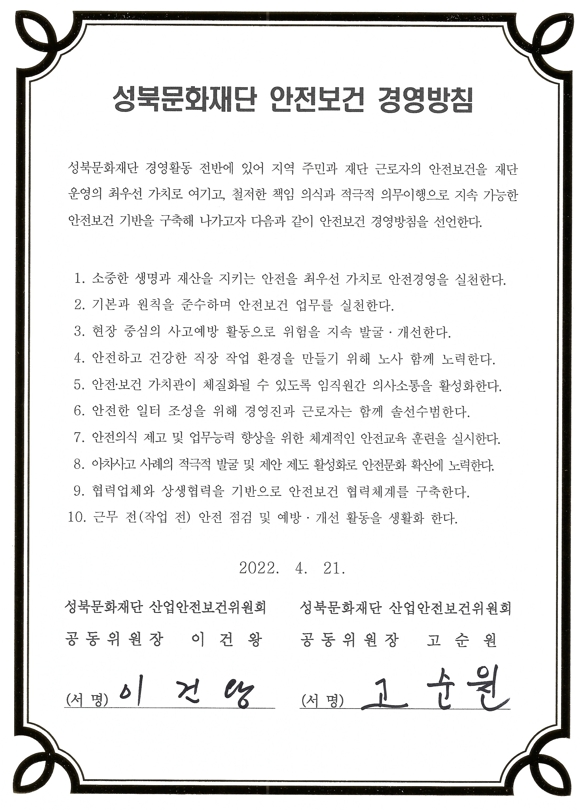 성북문화재단 안전보건 경영방침
성북문화재단 경영활동 전반에 있어 지역 주민과 재단 근로자의 안전보건을 재단
운영의 최우선 가치로 여기고, 철저한 책임 의식과 적극적 의무이행으로 지속 가능한
안전보건 기반을 구축해 나가고자 다음과 같이 안전보건 경영방침을 선언한다.
1. 소중한 생명과 재산을 지키는 안전을 최우선 가치로 안전경영을 실천한다.
2. 기본과 원칙을 준수하며 안전보건 업무를 실천한다.
3. 현장 중심의 사고예방 활동으로 위험을 지속 발굴·개선한다.
4. 안전하고 건강한 직장 작업 환경을 만들기 위해 노사 함께 노력한다.
5. 안전·보건 가치관이 체질화될 수 있도록 임직원간 의사소통을 활성화한다.
6. 안전한 일터 조성을 위해 경영진과 근로자는 함께 솔선수범한다.
7. 안전의식 제고 및 업무능력 향상을 위한 체계적인 안전교육 훈련을 실시한다.
8. 아차사고 사례의 적극적 발굴 및 제안 제도 활성화로 안전문화 확산에 노력한다.
9. 협력업체와 상생협력을 기반으로 안전보건 협력체계를 구축한다.
10. 근무 전(작업 전) 안전 점검 및 예방·개선 활동을 생활화 한다.
2022. 4. 21.
성북문화재단 산업안전보건위원회 성북문화재단 산업안전보건위원회
공동위원장 이 건 왕 공동위원장 고 순 원
(서 명) 이 건 왕 (서 명) 고 순 원